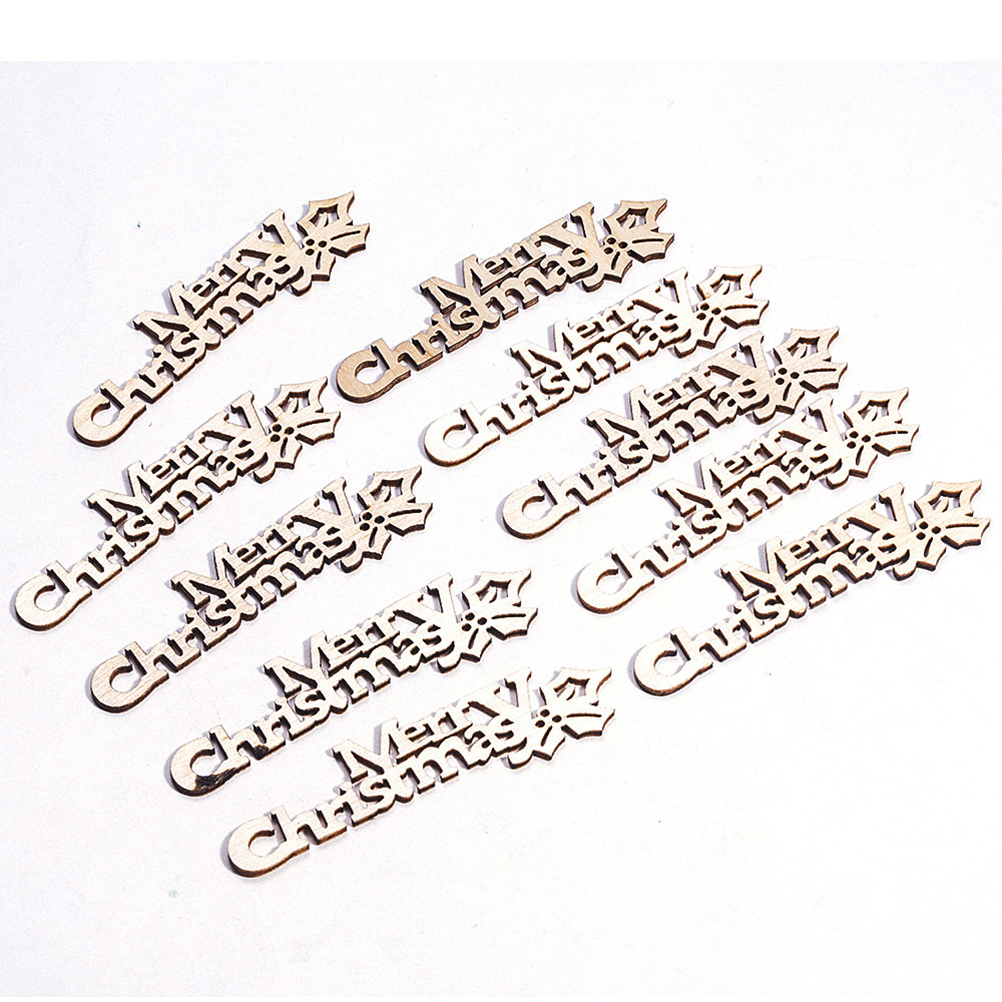 Merry
Christmas
Merry
Christmas
Merry
Christmas
Merry
Christmas
Merry
Christmas
Merry
Christmas
Merry
Christmas
Merry
Christmas
Merry
Christmas
Merry
Christmas